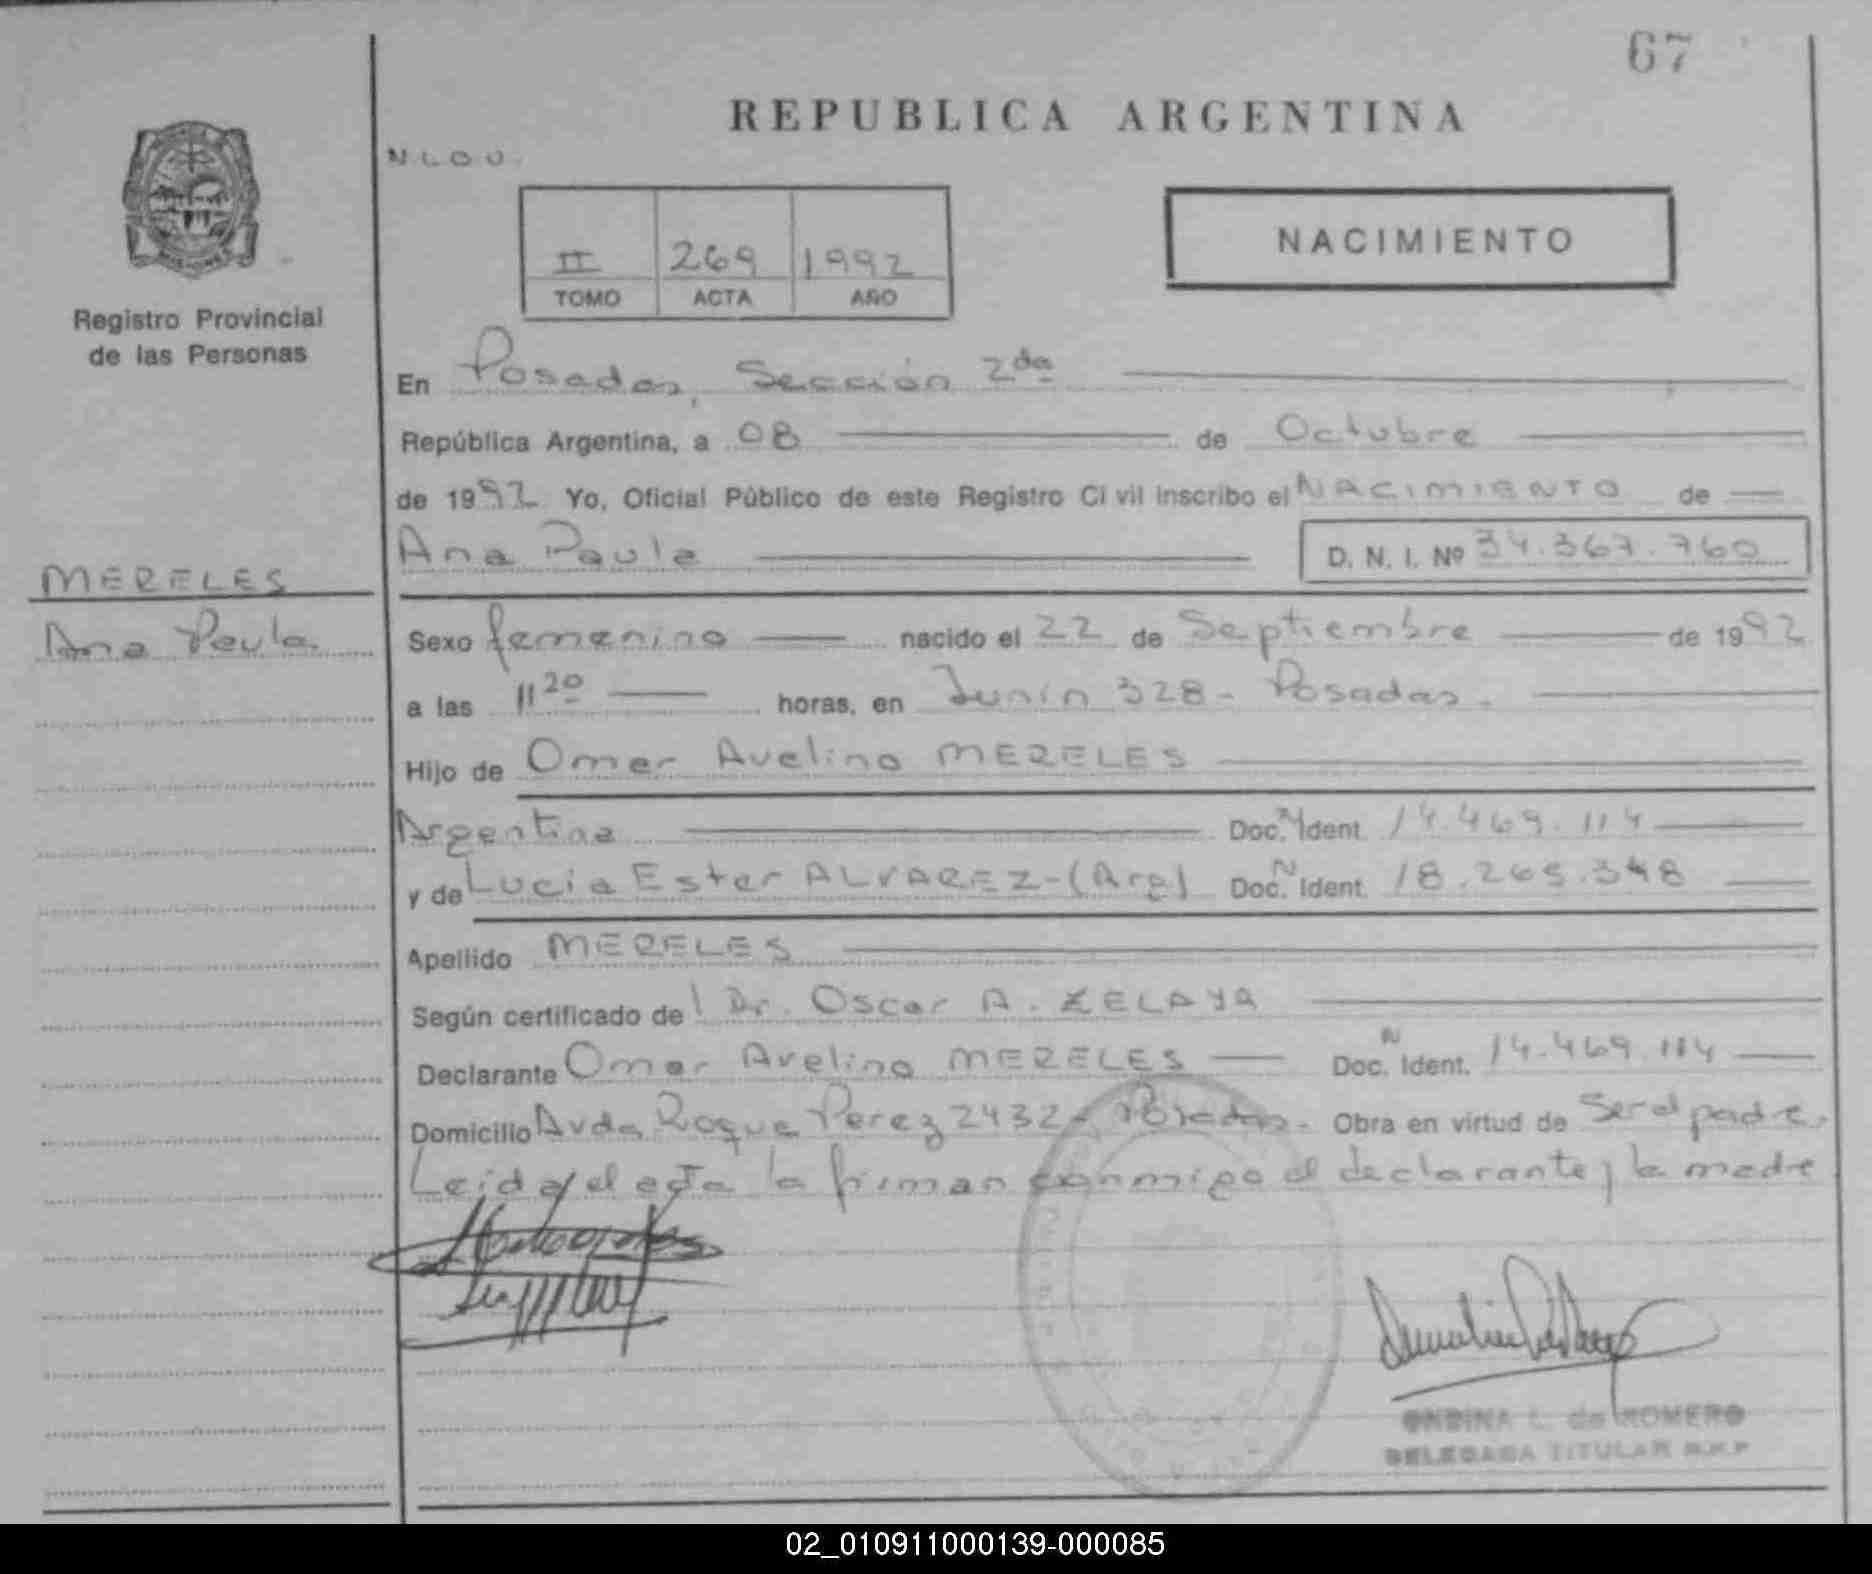 67
REPUBLICA ARGENTINA
N L O U.
II 269 1992
TOMO ACTA AÑO
NACIMIENTO
Registro Provincial
de las Personas
En Posadas, Sección 2da
República Argentina, a 08 de Octubre
de 1992 Yo, Oficial Público de este Registro Civil inscribo el NACIMIENTO de
Ana Paula D. N. I. Nº 34.367.760
MERELES
Ana Paula
Sexo femenino nacido el 22 de Septiembre de 1992
a las 11 20 horas, en Junín 328 - Posadas.
Hijo de Omar Avelino MERELES
Argentina Doc. N Ident. 14.469.114
y de Lucia Ester ALVAREZ - (Arg) Doc. N Ident. 18.265.348
Apellido MERELES
Según certificado del Dr. Oscar A. ZELAYA
Declarante Omar Avelino MERELES Doc. N Ident. 14.469.114
Domicilio Avda Roque Perez 2432 - Posadas. Obra en virtud de Ser el padre.
Leida el acta la firman conmigo el declarante y la madre
ONDINA L. de ROMERO
DELEGADA TITULAR R.P.P
02_010911000139-000085